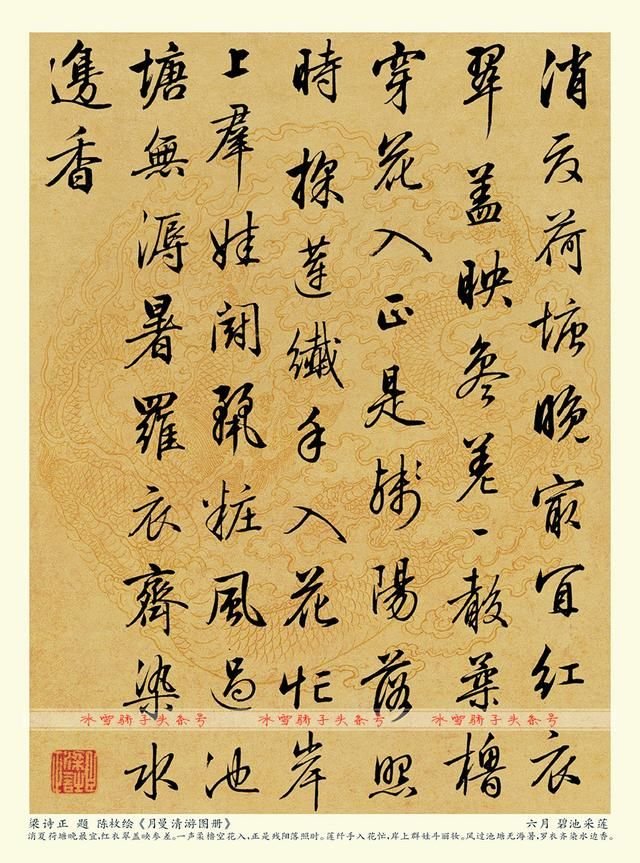 消夏荷塘晚最宜紅衣
翠盖映參差一聲柔櫓
穿花入正是殘陽落照
時採蓮纖手入花忙岸
上羣娃鬪粧風過池
塘無溽暑羅衣齊染水
邊香
冰雪骄子头条号 冰雪骄子头条号 冰雪骄子头条号
梁诗正 题 陈枚绘《月曼清游图册》 六月 碧池采莲
消夏荷塘晚最宜,红衣翠盖映参差。一声柔橹空花入,正是残阳落照时。莲纤手入花忙,岸上群娃斗丽妆。风过池塘无海暑,罗衣齐染水边香。